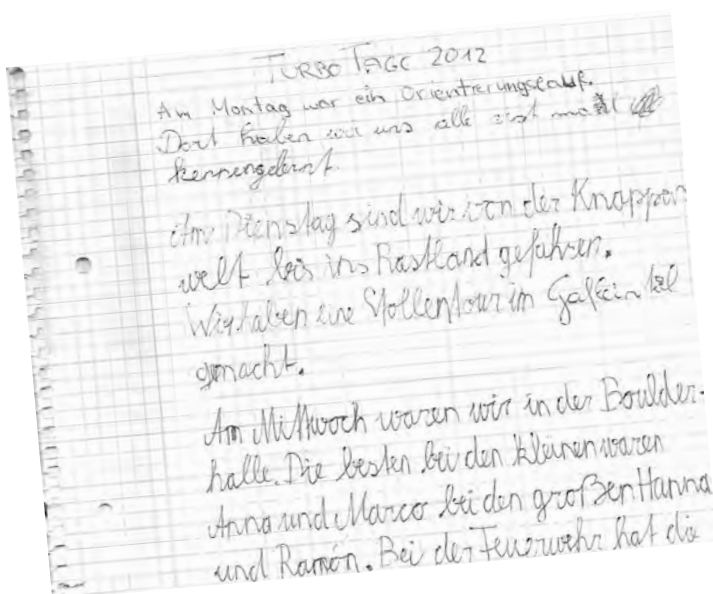 TURBO TAGE 2012
Am Montag war ein Orientierungslauf.
Dort haben wir uns alle erst mal
kennengelernt.
Am Dienstag sind wir von der Knappen
welt bis ins Rastland gefahren.
Wir haben eine Stollentour im Gafleintal
gemacht.
Am Mittwoch waren wir in der Boulder-
halle. Die besten bei den kleinen waren
Anna und Marco bei den großen Hanna
und Ramón. Bei der Feuerwehr hat die